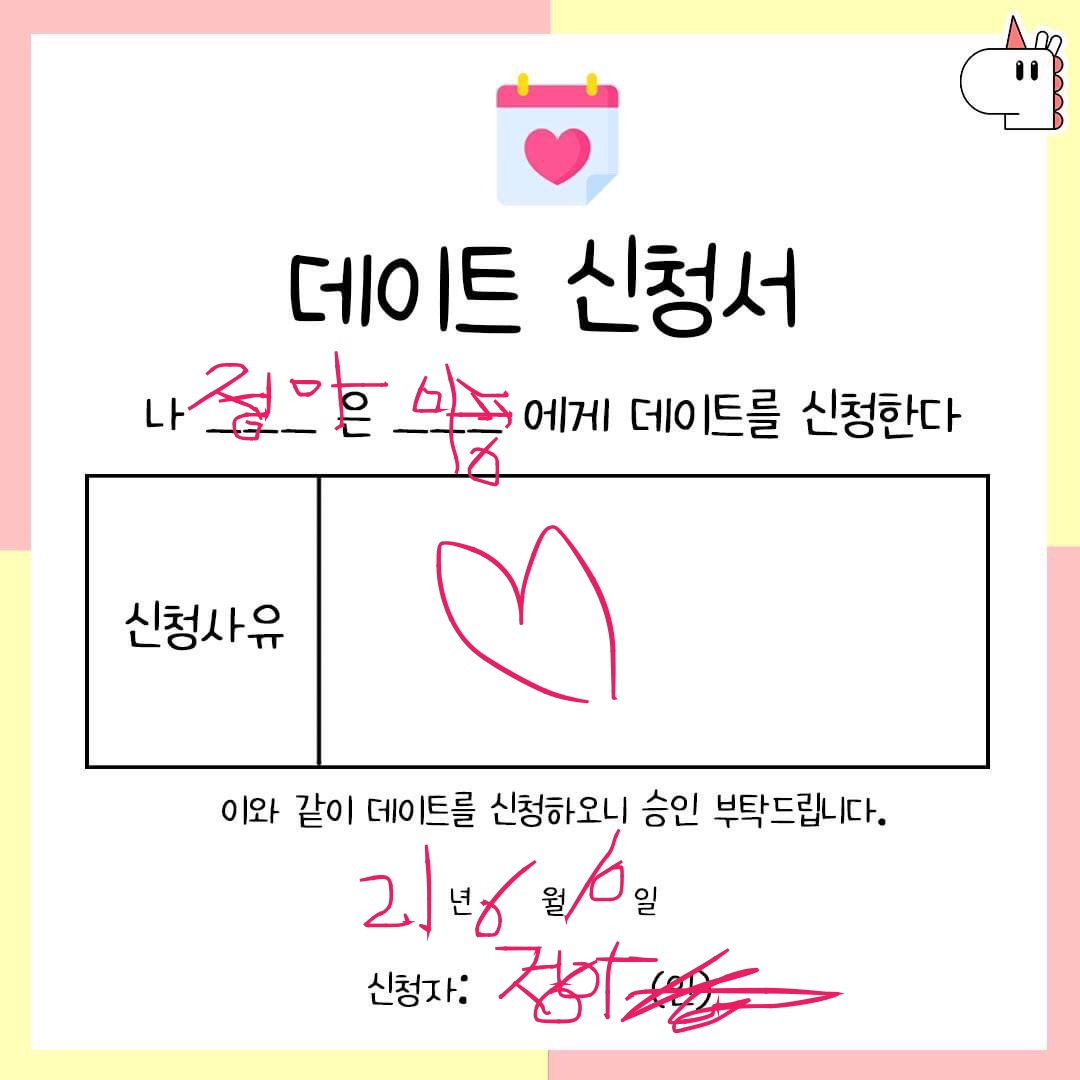 데이트 신청서
나 정아 은 에게 데이트를 신청한다
신청사유
이와 같이 데이트를 신청하오니 승인 부탁드립니다.
21년 6월 6일
신청자: 정아 (인)